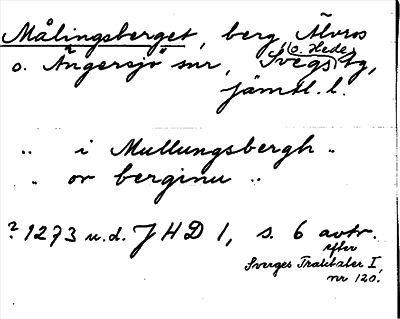 Målingsberget, berg Älvros
o. Ängersjö snr, Svegs (o. Hede) tg,
jämtl. l.
„ i Mullungsbergh „
„ or berginu „
? 1273 u.d. JHD 1, s. 6 avtr.
efter
Sverges Traktater I,
nr 120.